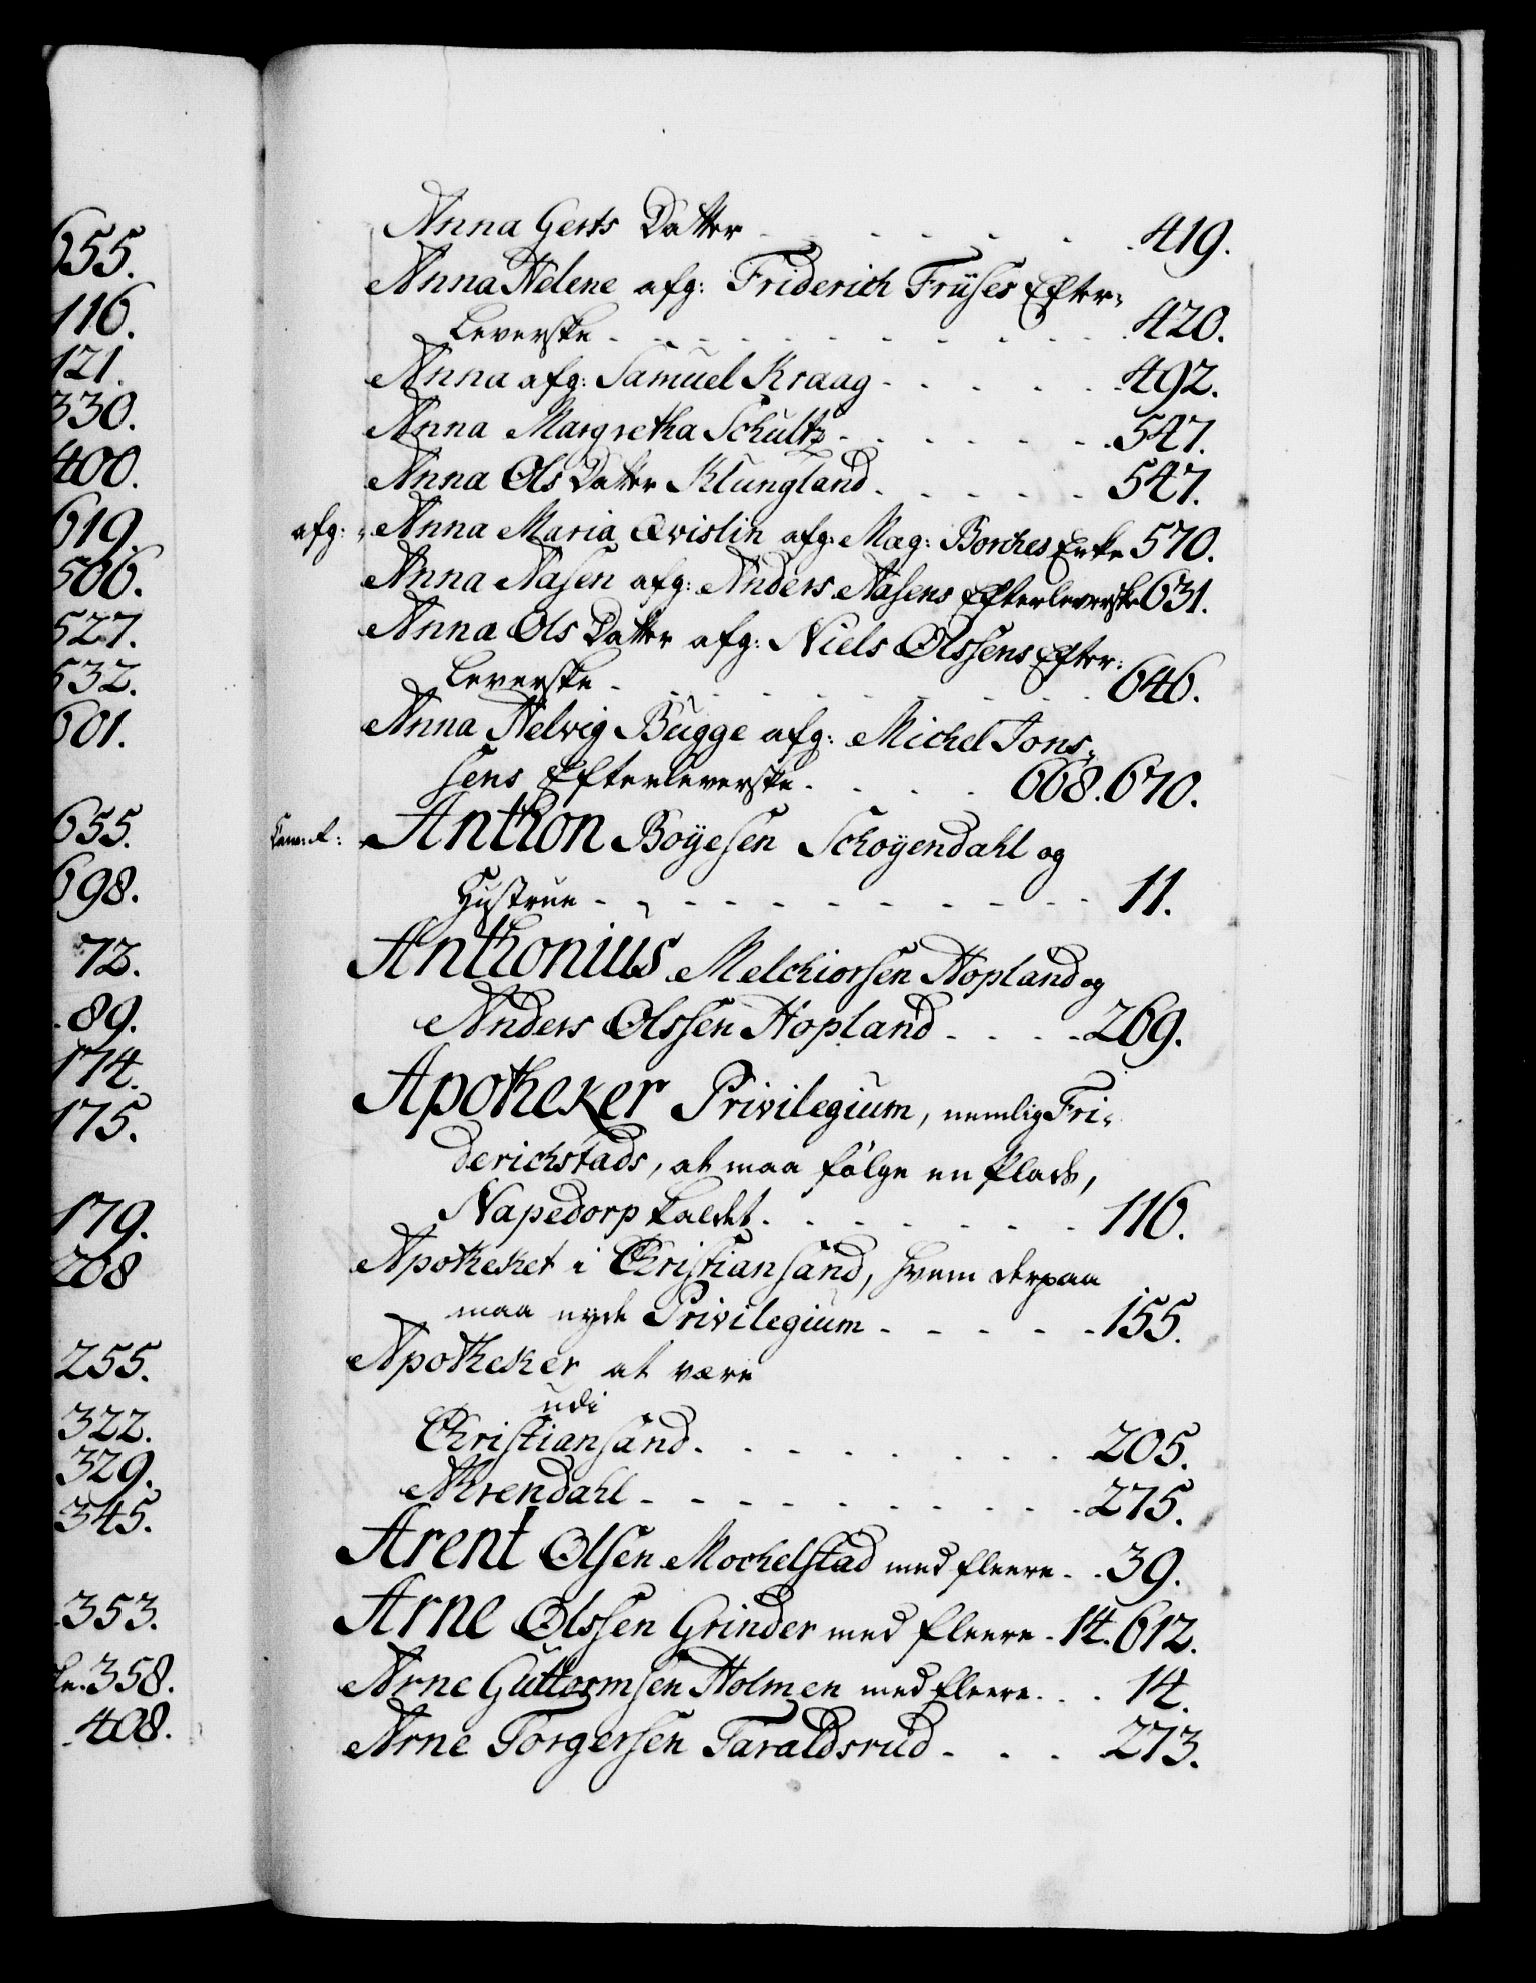 655.
116.
121.
330.
400.
619.
506.
527.
532.
601.
655.
698.
72.
89.
174.
175.
179.
208
255.
322.
329.
345.
353.
358.
408.
Anna Gerts Datter - - - - - - 419.
Anna Helene afg: Friderich Früses Efter-
leverske - - - - - - - - - 420.
Anna afg: Samuel Kraag - - - - - 492.
Anna Margretha Schultz - - - - - - 547.
Anna Ols Datter Klungland - - - - - 547.
afg: Anna Maria Qvislin afg: Mag: Borches Enke 570.
Anna Aasen afg: Anders Aasens Efterleverske 631.
Anna Ols Datter afg: Niels Olssens Efter-
leverske - - - - - - - - - 646.
Anna Helvig Bugge afg: Michel Jons-
sens Efterleverske - - - - 668. 670.
Anthon Boyesen Schoyendahl og
Hustrue - - - - - - - - - - 11.
Anthonius Melchiorsen Hopland og
Anders Olssen Hopland - - - - 269.
Apotheker Privilegium, nemlig Fri-
derichstads, at maa følge en Plads,
Napedorp kaldet - - - - - - - 116.
Apotheket i Christiansand, hvem derpaa
maa nyde Privilegium - - - - - 155.
Apotheker at være
udi
Christiansand - - - - - - - - 205.
Ahrendahl - - - - - - - - - - 275.
Arent Olsen Mochelstad med fleere - - 39.
Arne Olssen Grinder med fleere - 14. 612.
Arne Guttormsen Holmen med fleere - - - 14.
Arne Torgersen Taraldsrud - - - 273.